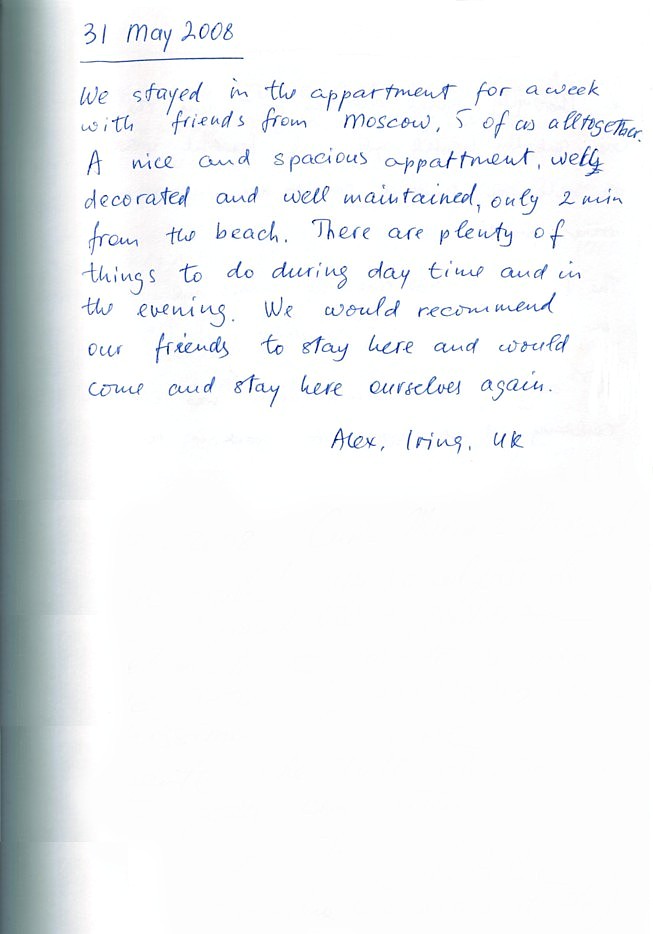 31 May 2008
We stayed in the appartment for a week
with friends from Moscow, 5 of us alltogether.
A nice and spacious appattment, well
decorated and well maintained, only 2 min
from the beach. There are plenty of
things to do during day time and in
the evening. We would recommend
our friends to stay here and would
come and stay here ourselves again.
Alex, Irina, UK